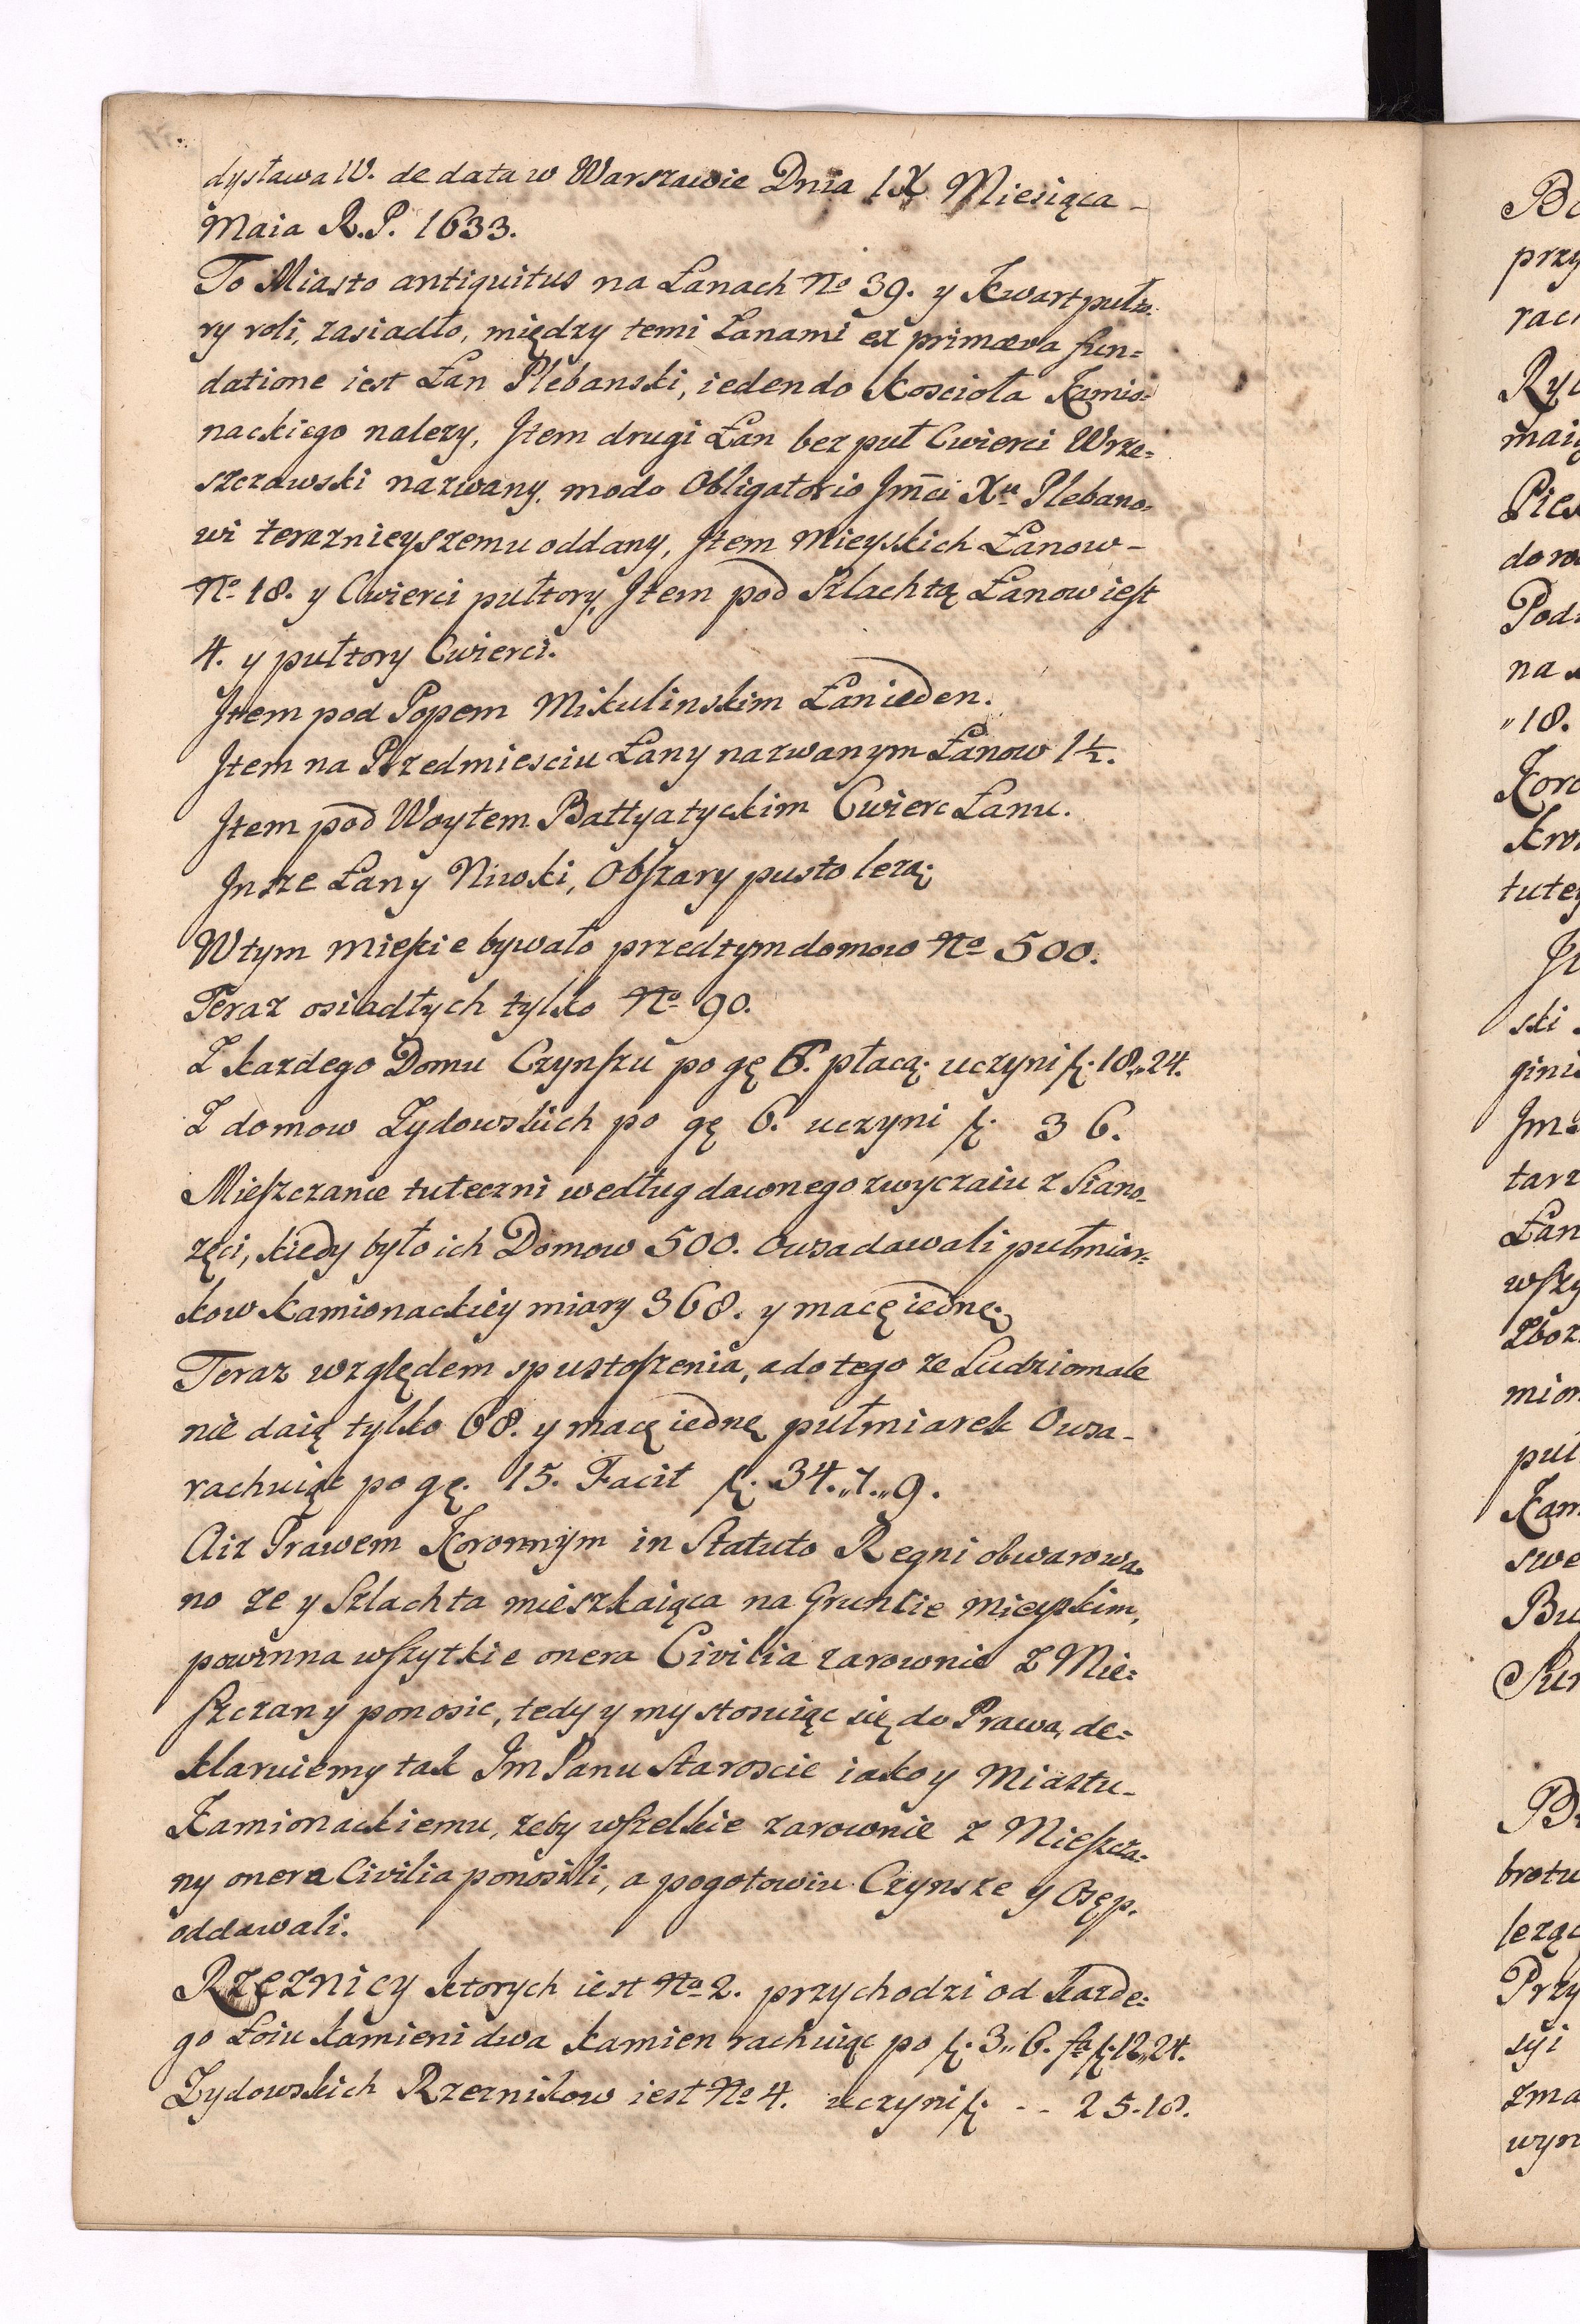 dysława IV. de data w Warszawie Dnia IX Miesiąca -
Maia R.P. 1633.
To Miasto antiquitus na Łanach No 39. y Kwart pułto:
ry roli, zasiadło, między temi Łanami ex primæva fun=
datione iest Łan Plebanski, ieden do Koscioła Kamio=
nackiego nalezy, Jtem drugi Łan bez puł Cwierci Wrze=
szczowski nazwany, modo Obligatorio Jmci Xu Plebano=
wi teraznieyszemu oddany, Jtem Mieyskich Łanow -
No 18. y Cwierci pułtory, Jtem pod Szlachtą Łanow iest
4. y pułtory Cwierci.
Jtem pod Popem Mikulinskim Łan ieden.
Jtem na Przedmiesciu Łany nazwanym Łanow 1½.
Jtem pod Woytem Battyatyckim Cwierc Łanu.
Jnsze Łany Niwski, Obszary pusto lezą;
W tym Miescie bywało przedtym domow No 500.
Teraz osiadłych tylko No 90.
Z kazdego Domu Czynszu po gę 6. płacą; uczyni f. 18,,24.
Z domow Zydowskich po gę 6. uczyni f. 36.
Mieszczanie tuteczni według dawnego zwyczaiu z Siano=
zęci, kiedy było ich Domow 500. Owsa dawali pułmiar=
kow Kamionackiey miary 368. y macę iednę;
Teraz względem spustoszenia, a do tego ze Ludzi o male
nie daią tylko 68. y macę iednę pułmiarek Owsa -
rachuiąc po gę. 15. Facit f. 34.,,7.,,9.
A iz Prawem Koronnym in Statuto Regni obwarowa=
no ze y Szlachta mieszkaiąca na Gruncie Mieyskim,
powinna wszytkie onera Civilia zarownie z Mie=
szczany ponosic, tedy y my stosuiąc się do Prawa, de=
klaruiemy tak Jm Panu Staroscie iako y Miastu -
Kamionackiemu, zeby wszelkie zarownie z Mieszcza=
ny onera Civilia ponosili, a pogotowiu Czynsze y Osęp.
oddawali.
Rzeznicy ktorych iest No 2. przychodzi od kazde=
go Łoiu kamieni dwa kamien rachuiąc po f. 3,,6. fa f. 12,,24.
Zydowskich Rzeznikow iest No 4. uczyni f. - - 25.18.